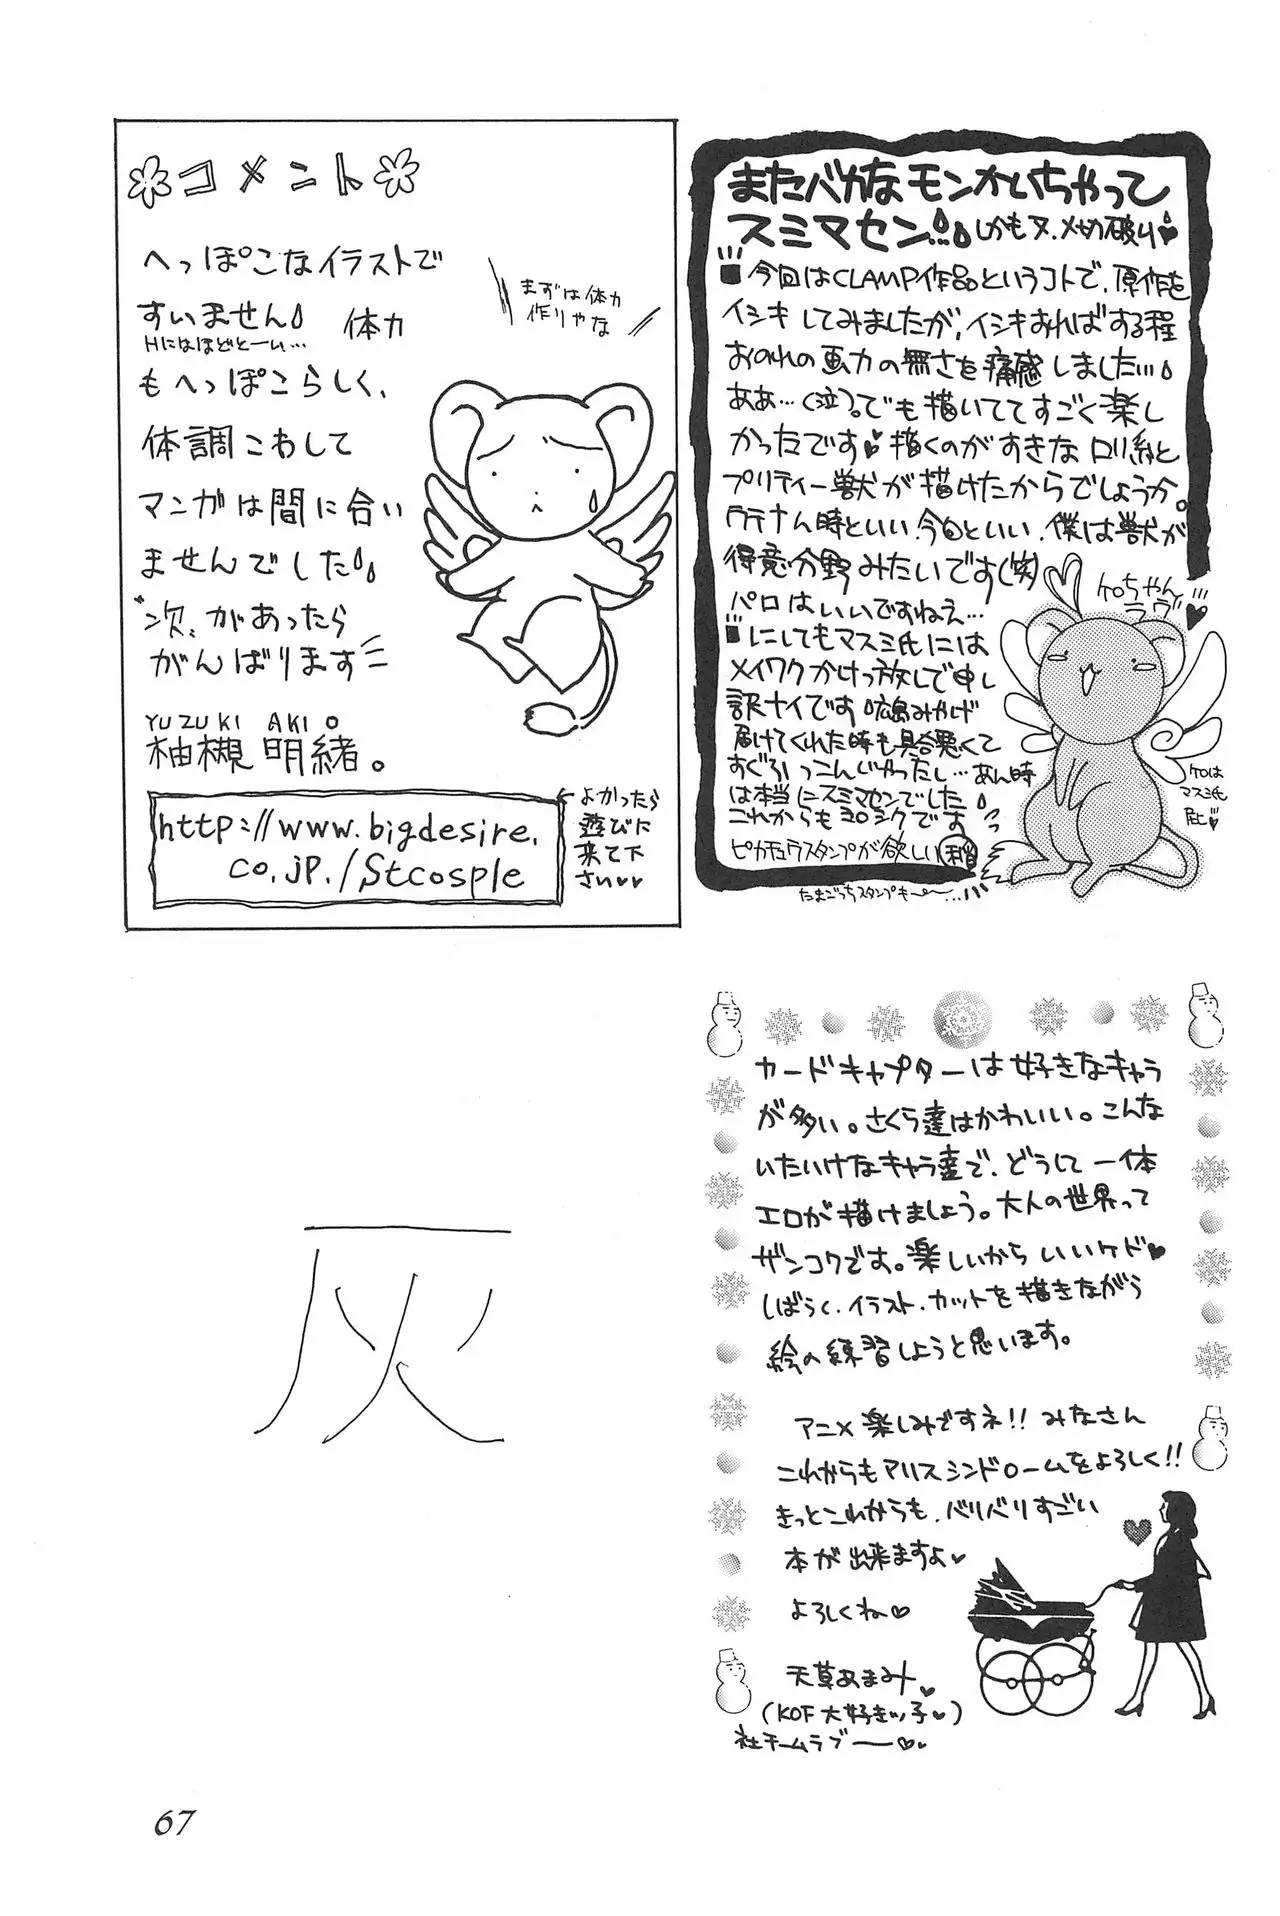 コメント
へっぽこなイラストで
すいません 体力
Hにはほどとーい…
もへっぽこらしく、
体調こわして
マンガは間に合い
ませんでした
"次"があったら
がんばります
まずは体力
作りやな
YUZUKI AKI
柚槻 明緒。
http://www.bigdesire.
co.jp./Stcosple
←よかったら
遊びに
来て下
さい♥♥
またバカなモンかいちゃって
スミマセン… しかもヌ、〆切破り♥
■今回はCLAMP作品というコトで、原作を
イシキしてみましたが、イシキすればする程
おのれの画力の無さを痛感しました…
ああ…(泣)。でも描いててすごく楽し
かったです♥描くのがすきなロリ系と
プリティー獣が描けたからでしょうか。
ウテナん時といい、今回といい、僕は獣が
得意分野みたいです(笑)
パロはいいですねえ…
■にしてもマスミ氏には
メイワクかけっ放しで申し
訳ナイです 広島みやげ
届けてくれた時も具合悪くて
すぐひっこんじゃったし…あん時
は本当にスミマセンでした
これからもヨロシクです
ピカチュウスタンプが欲しい
たまごっちスタンプも〜〜…
ケロちゃん
ラヴ
ケロは
マスミ氏
カードキャプターは好きなキャラ
が多い。さくら達はかわいい。こんな
いたいけなキャラ達で、どうして一体
エロが描けましょう。大人の世界って
ザンコクです。楽しいからいいケド♥
しばらく、イラスト、カットを描きながら
絵の練習しようと思います。
アニメ楽しみですネ!! みなさん
これからもアリスシンドロームをよろしく!!
きっとこれからも、バリバリすごい
本が出来ますよ♥
よろしくね♡
天草あまみ♥
(KOF大好きッ子♥)
社チームラブ──♡♥
灰
67